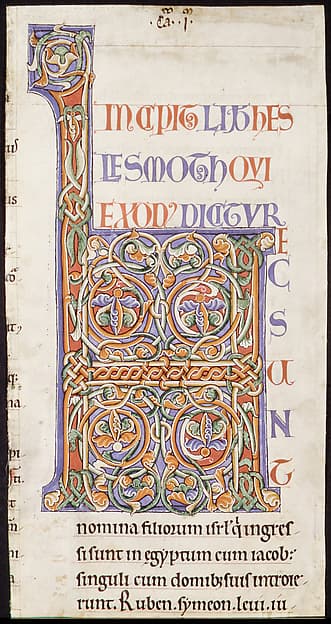 Ca. I.
INCIPIT LIB HES
LESMOTH QVI
EXODꝰ DICITVR
H
EC
S
U
N
T
nomina filiorum isrl̓ q̇ ingres
si sunt in egyptum cum iacob:
singuli cum domibꝫ suis introie
runt. Ruben. symeon. leui. iu